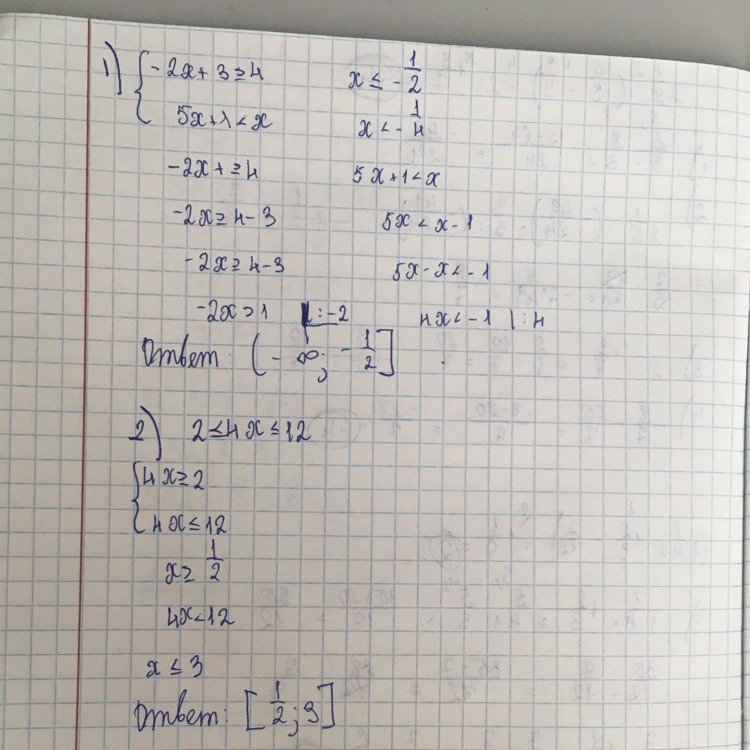 1) { -2x + 3 ≥ 4    x ≤ - 1/2
5x + 1 < x    x < - 1/4
-2x + ≥ 4    5x + 1 < x
-2x ≥ 4 - 3    5x < x - 1
-2x ≥ 4 - 3    5x - x < -1
-2x > 1 | : -2    4x < -1 | : 4
Ответ: (- ∞; - 1/2]
2) 2 ≤ 4x ≤ 12
{ 4x ≥ 2
4x ≤ 12
x ≥ 1/2
4x < 12
x ≤ 3
Ответ: [1/2; 3]